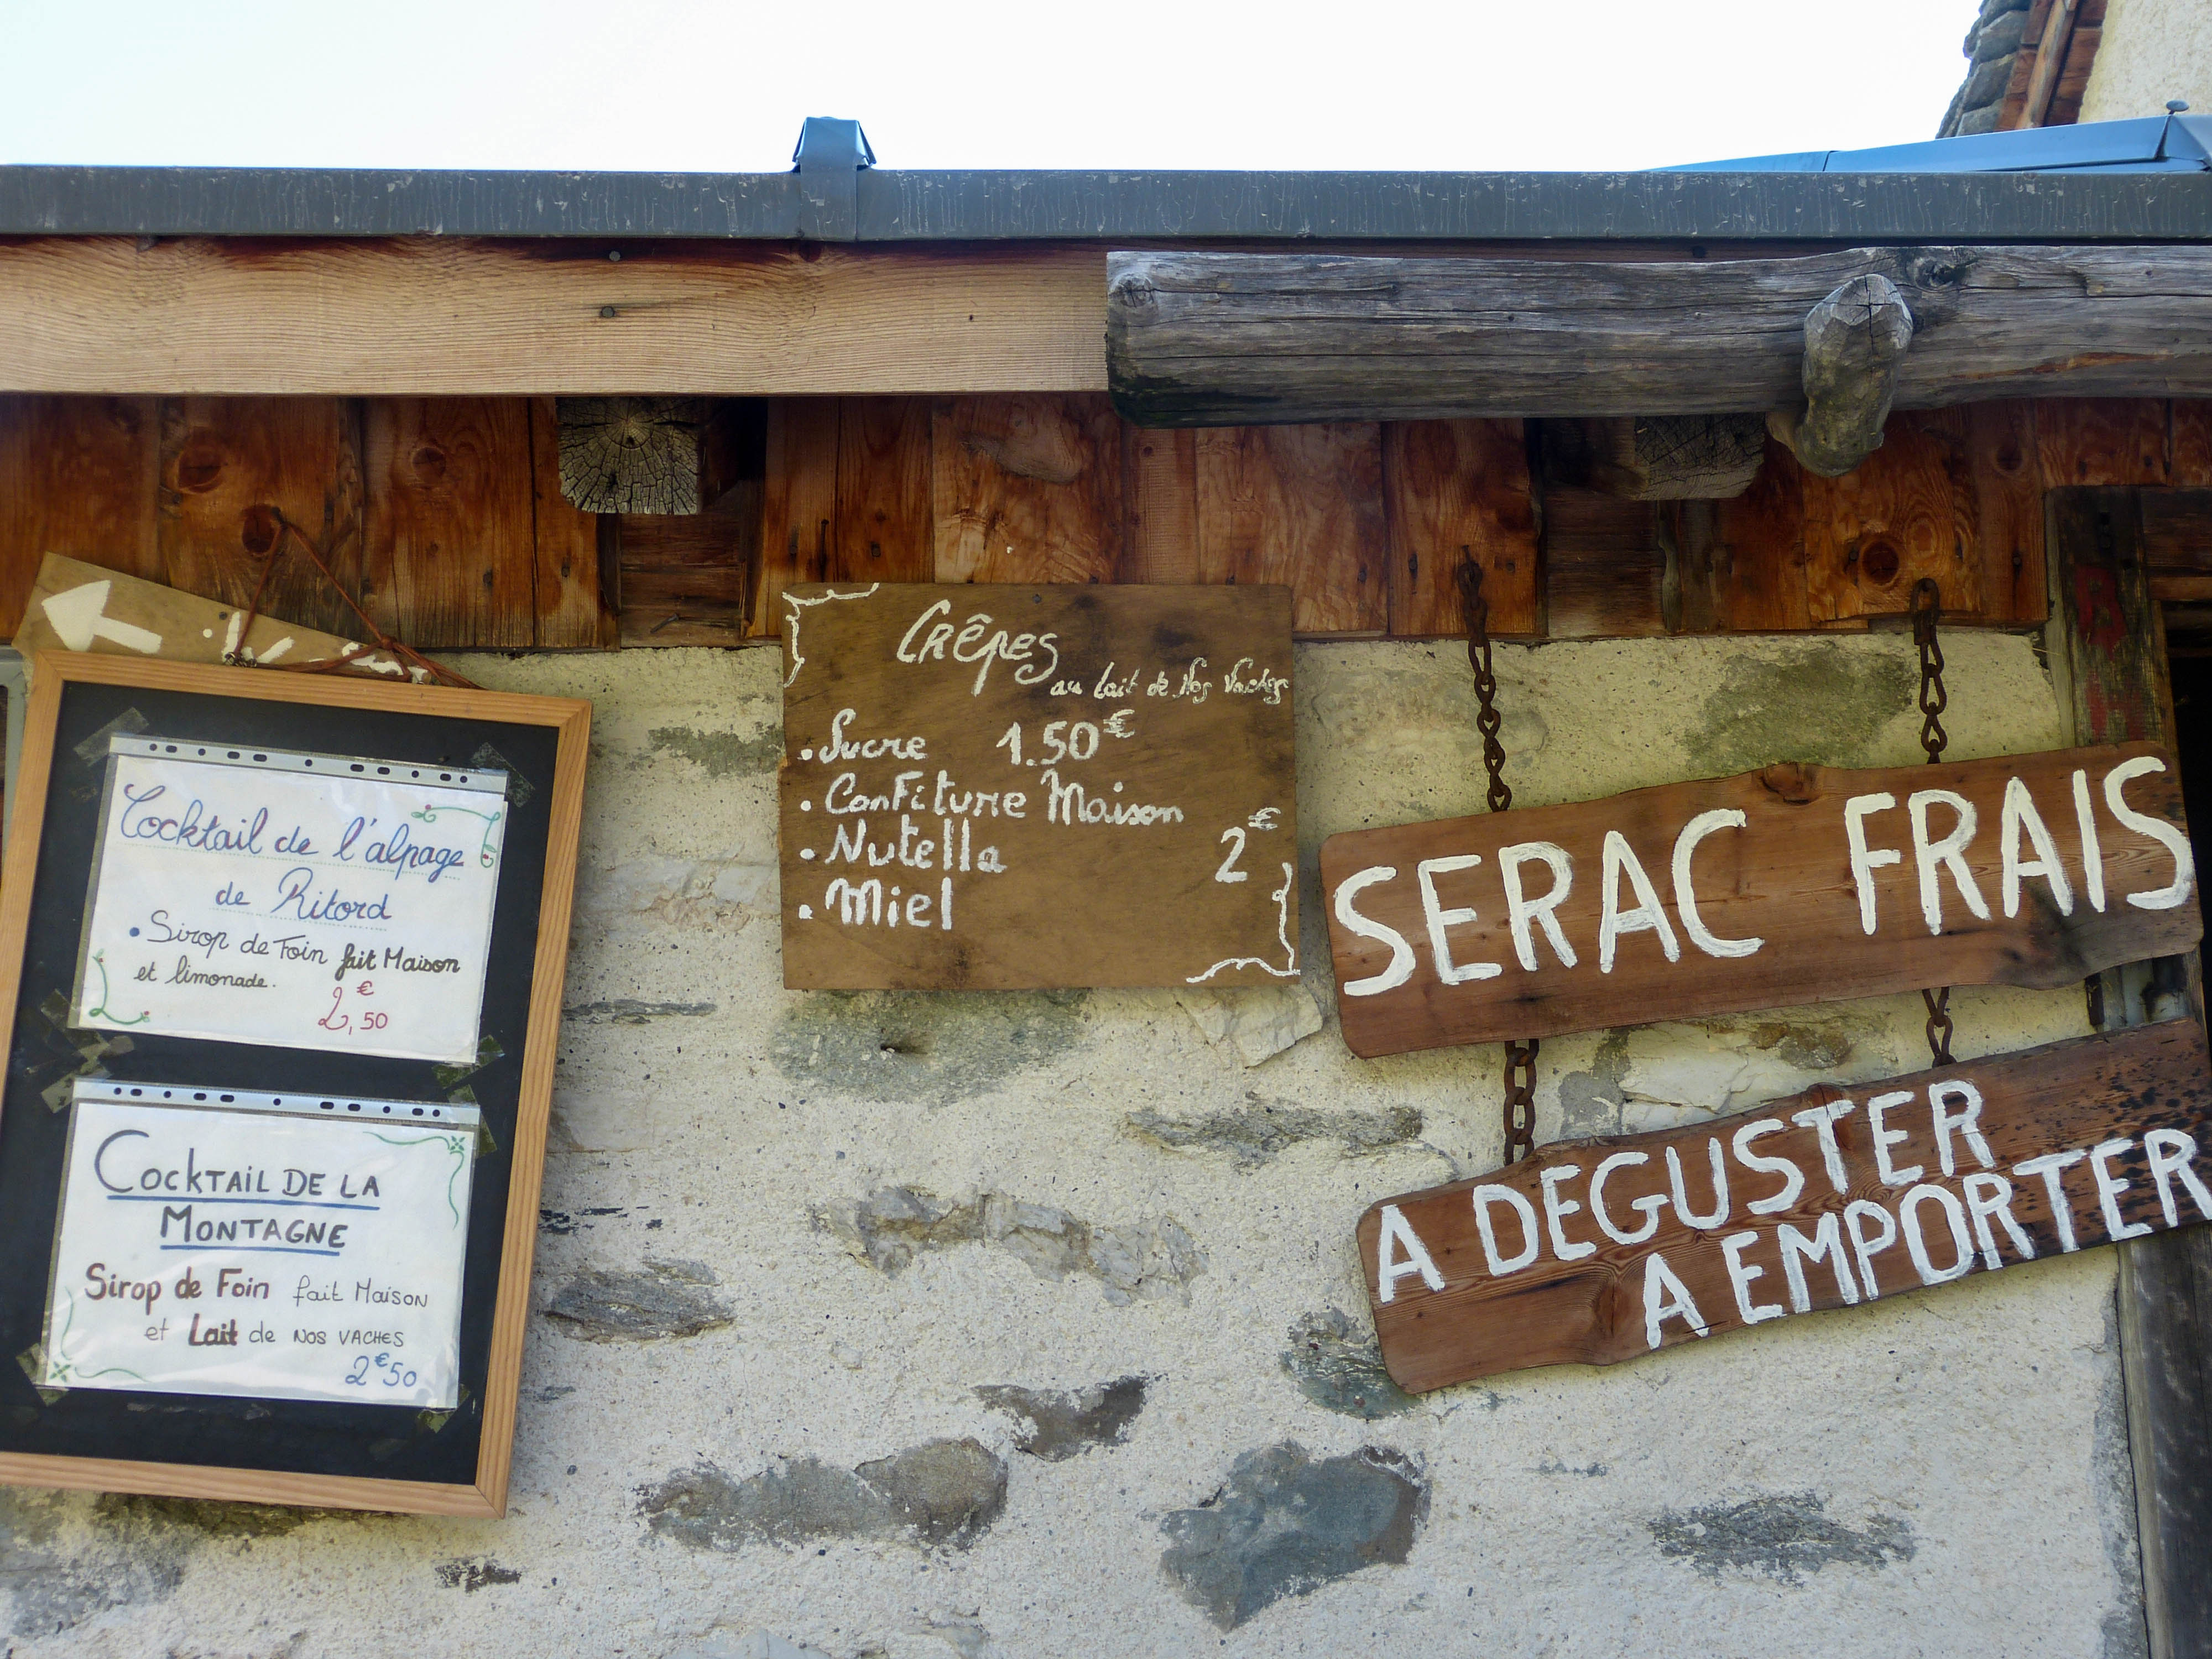 Cocktail de l'alpage
de Ritord
• Sirop de Foin fait Maison
et limonade.
2,50€
COCKTAIL DE LA
MONTAGNE
Sirop de Foin fait Maison
et Lait de NOS VACHES
2€50
CRÊPES
au lait de Nos Vaches
• Sucre 1.50€
• Confiture Maison
• Nutella 2€
• Miel
SERAC FRAIS
A DEGUSTER
A EMPORTER